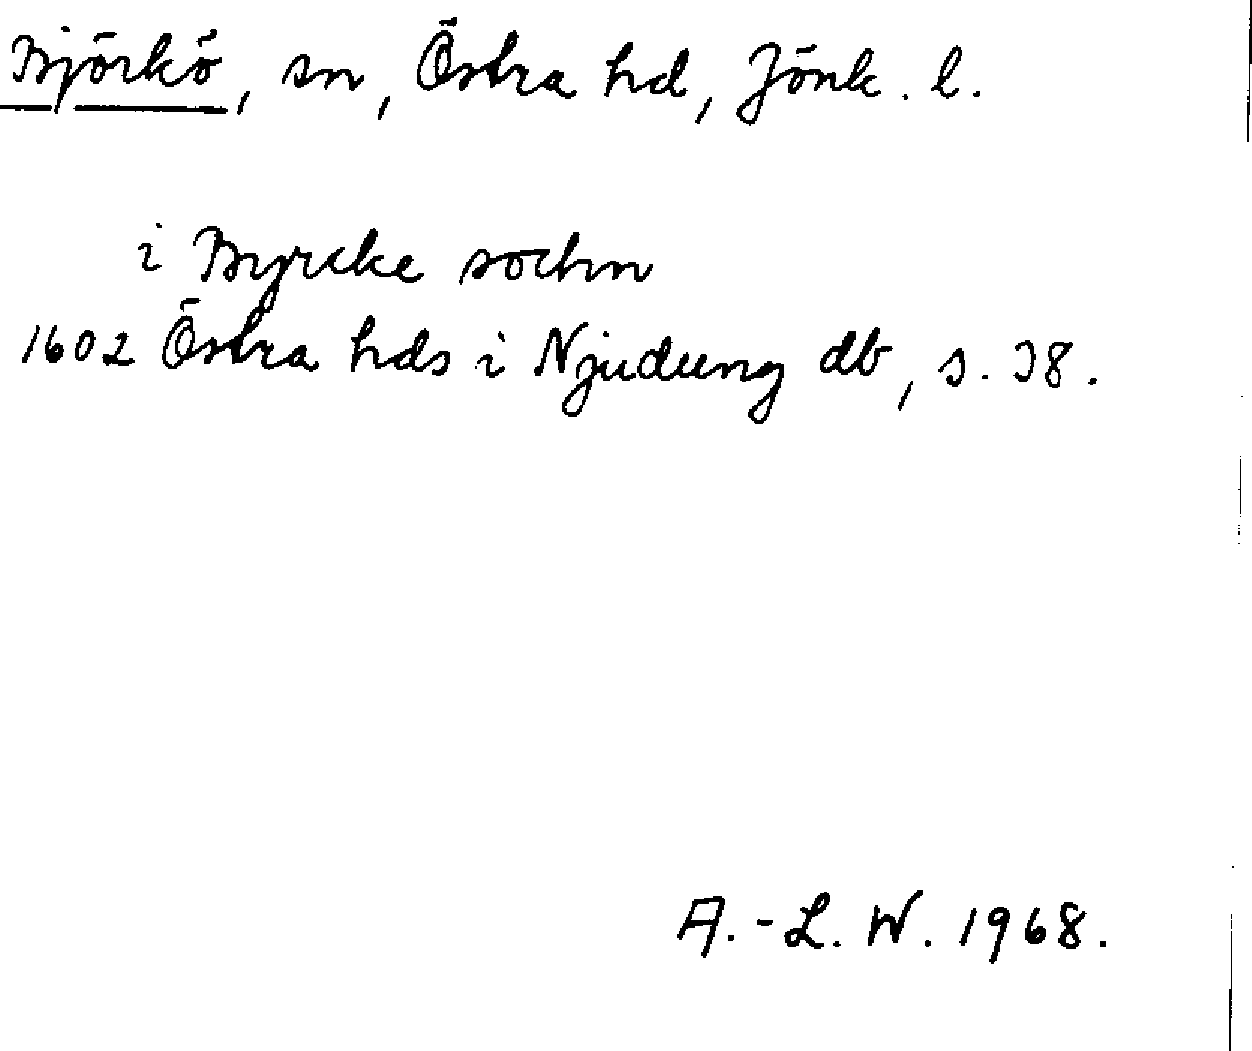 Björkö, sn, Östra hd, Jönk. l.
i Byrcke sochn
1602 Östra hds i Njudung db, s. 38.
A.-L. W. 1968.